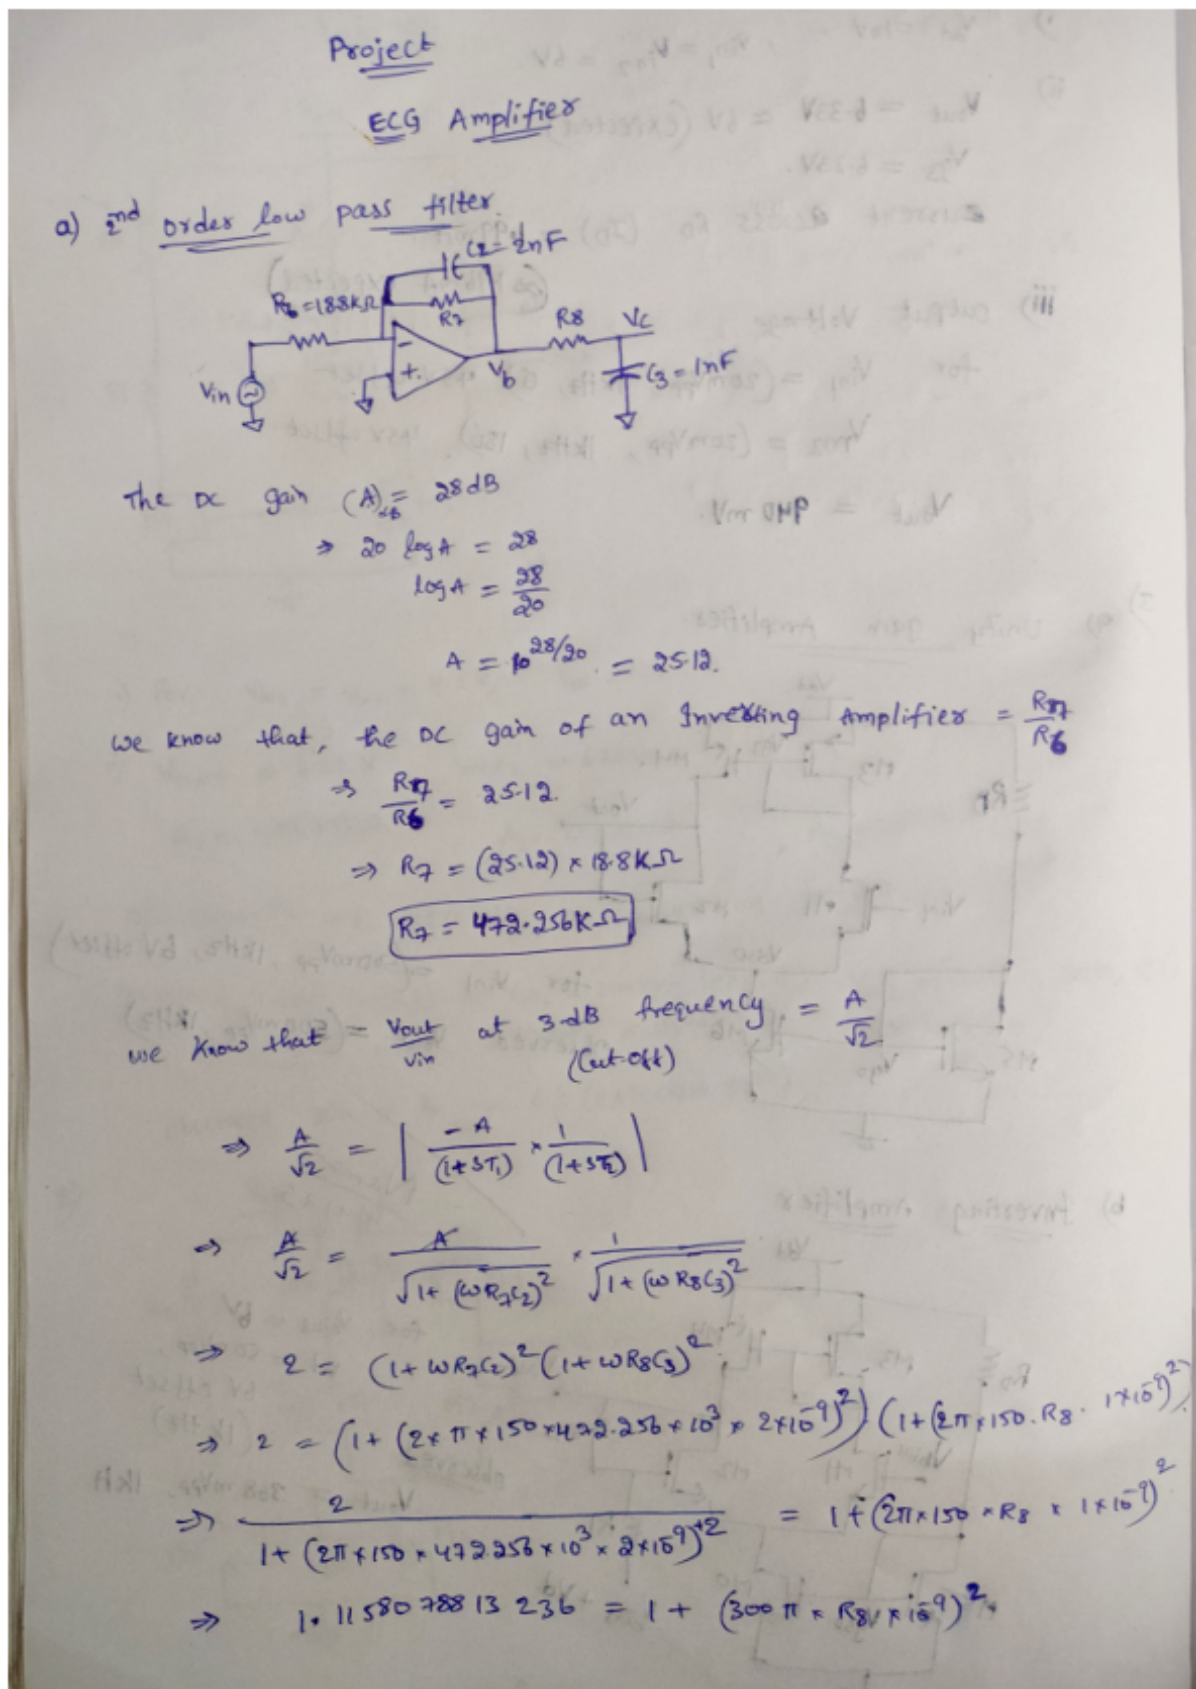 Project
ECG Amplifier
a) 2nd order low pass filter.
C2 = 2nF
R6 = 18.8KΩ
R7
R8
Vc
Vin
-
+
Vb
C3 = 1nF
The DC gain (A)dB = 28 dB
⇒ 20 log A = 28
log A = 28/20
A = 10^28/20 = 25.12.
we know that, the DC gain of an Inverting Amplifier = R7/R6
⇒ R7/R6 = 25.12.
⇒ R7 = (25.12) × 18.8KΩ
R7 = 472.256KΩ
we know that = Vout/Vin at 3-dB frequency = A/√2
(Cut-off)
⇒ A/√2 = | -A/(1+ST1) × 1/(1+ST2) |
⇒ A/√2 = A/√(1+(ωR7C2)^2) × 1/√(1+(ωR8C3)^2)
⇒ 2 = (1+ωR7C2)^2 (1+ωR8C3)^2
⇒ 2 = (1+(2×π×150×472.256×10^3×2×10^-9)^2) (1+(2π×150.R8. 1×10^-9)^2)
⇒ 2/(1+(2π×150×472.256×10^3×2×10^-9)^+2) = 1+(2π×150×R8×1×10^-9)^2
⇒ 1.1158078813236 = 1+(300π×R8×10^-9)^2.